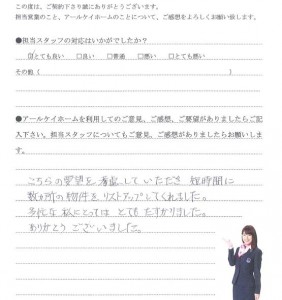 この度は、ご契約下さり誠にありがとうございます。
担当営業のこと、アールケイホームのことについて、ご感想をよろしくお願い致します。
●担当スタッフの対応はいかがでしたか？
□とても良い □良い □普通 □悪い □とても悪い
その他（ ）
●アールケイホームを利用してのご意見、ご感想、ご要望がありましたらご記
入下さい。担当スタッフについてもご意見、ご感想がありましたらお願いしま
す。
こちらの要望を考慮していただき 短時間に
数ヶ所の物件をリストアップしてくれました。
多忙な私にとっては とても たすかりました。
ありがとう ございました。